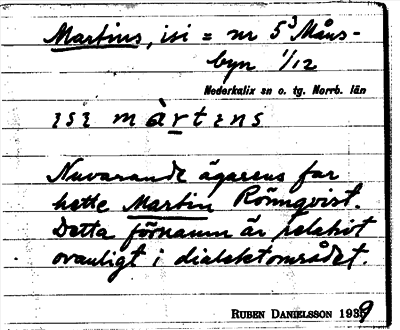 Martins, isi = nr 5³ Måns-
byn 1/12
Nederkalix sn o. tg. Norrb. län
ısı màrtens
Nuvarande ägarens far
hette Martin Rönnqvist.
Detta förnamn är relativt
ovanligt i dialektområdet.
RUBEN DANIELSSON 1939